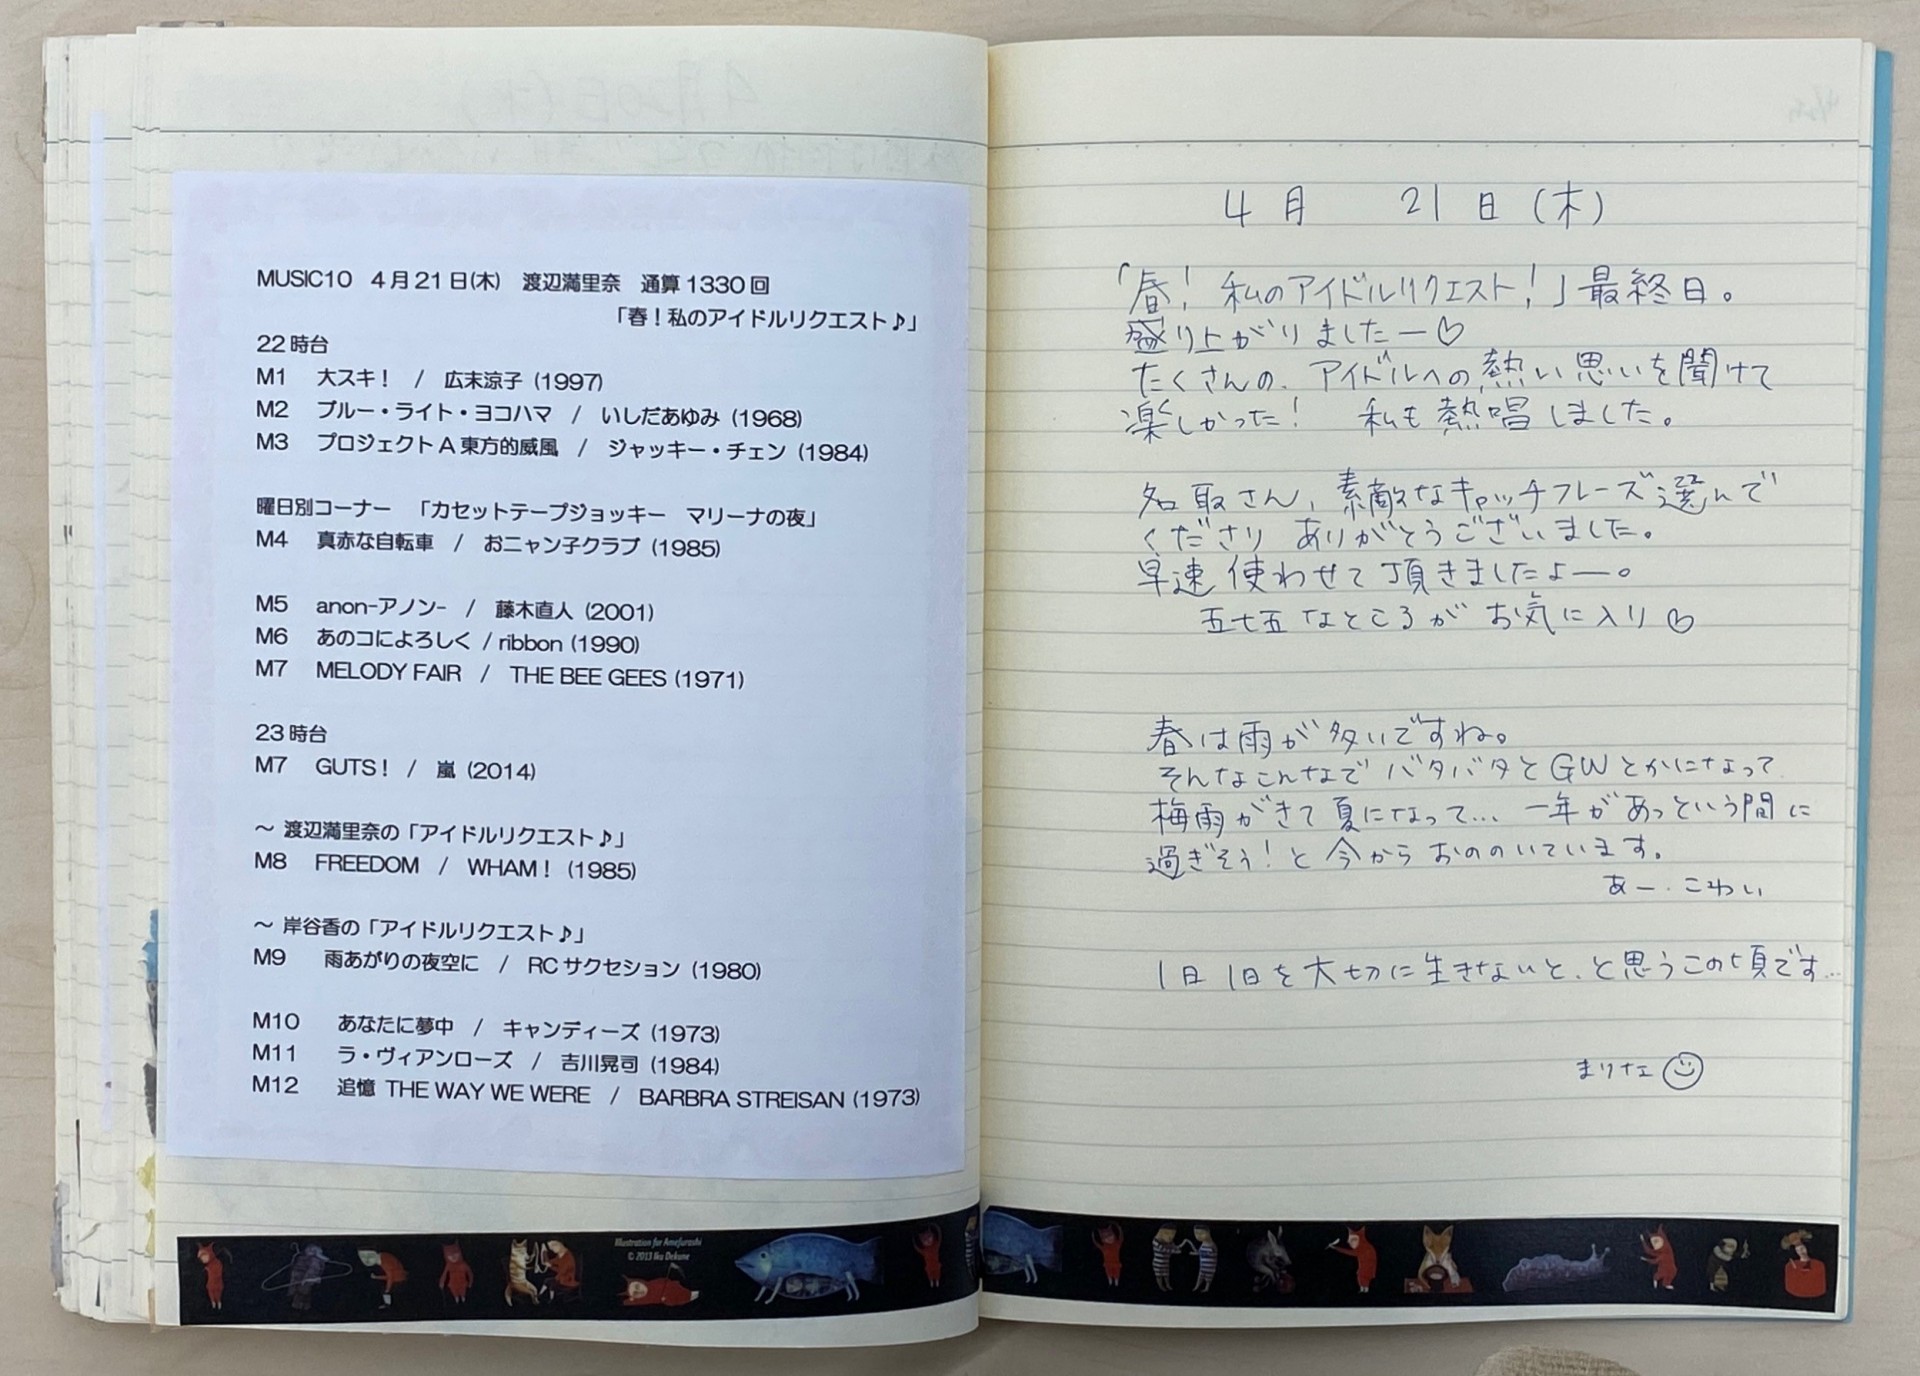 MUSIC10 4月21日(木) 渡辺満里奈 通算1330回
「春!私のアイドルリクエスト♪」
22時台
M1 大スキ! / 広末涼子 (1997)
M2 ブルー・ライト・ヨコハマ / いしだあゆみ (1968)
M3 プロジェクトA東方的威風 / ジャッキー・チェン (1984)
曜日別コーナー 「カセットテープジョッキー マリーナの夜」
M4 真赤な自転車 / おニャン子クラブ (1985)
M5 anon-アノン- / 藤木直人 (2001)
M6 あのコによろしく / ribbon (1990)
M7 MELODY FAIR / THE BEE GEES (1971)
23時台
M7 GUTS! / 嵐 (2014)
~ 渡辺満里奈の「アイドルリクエスト♪」
M8 FREEDOM / WHAM! (1985)
~ 岸谷香の「アイドルリクエスト♪」
M9 雨あがりの夜空に / RCサクセション (1980)
M10 あなたに夢中 / キャンディーズ (1973)
M11 ラ・ヴィアンローズ / 吉川晃司 (1984)
M12 追憶 THE WAY WE WERE / BARBRA STREISAN (1973)
Illustration for Amefurashi
© 2013 Iku Dekune
4月 21日(木)
「春! 私のアイドルリクエスト!」最終日。
盛り上がりましたー♡
たくさんの、アイドルへの熱い思いを聞けて
楽しかった! 私も熱唱しました。
名取さん、素敵なキャッチフレーズ選んで
くださり ありがとうございました。
早速使わせて頂きましたよー。
五七五なところが お気に入り♡
春は雨が多いですね。
そんなこんなで バタバタとGWとかになって
梅雨がきて夏になって… 一年があっという間に
過ぎそう!と今からおののいています。
あー、こわい
1日1日を大切に生きないと、と思うこの頃です…
まりな